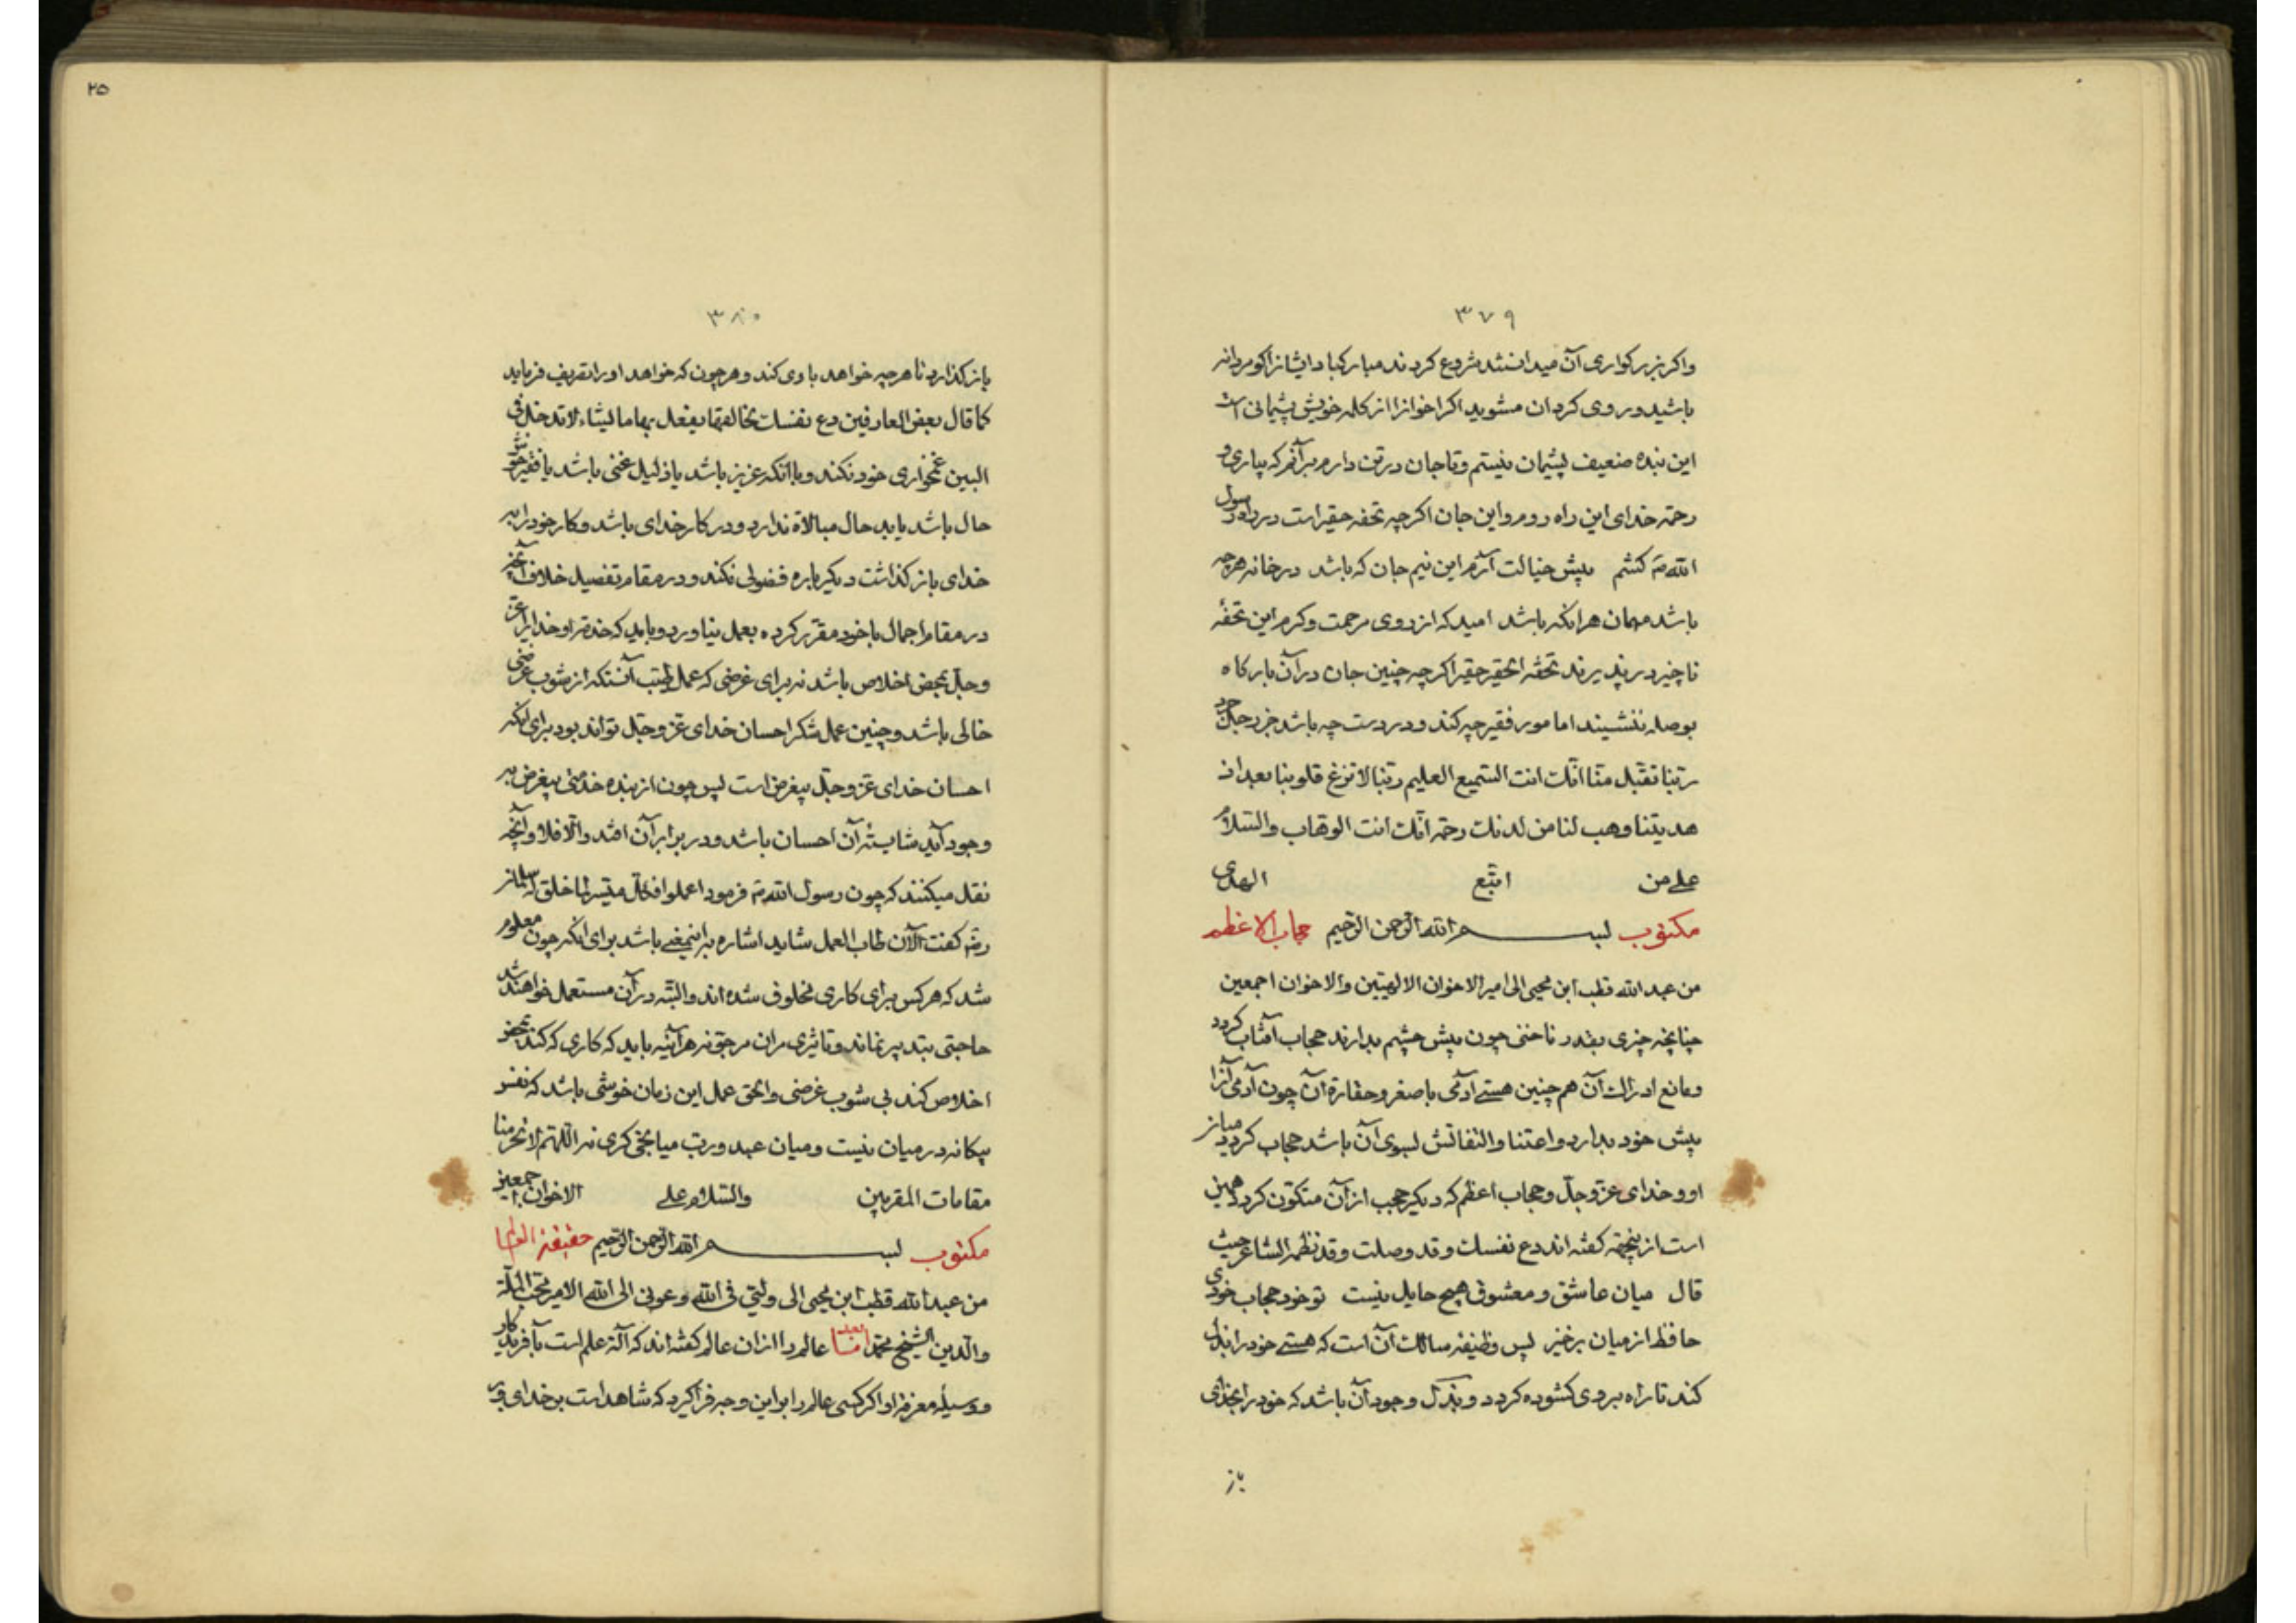 ۳۷۹
واکر بزرکواری آن میدانستند شروع کردند مبارکباد ایشانرا کو مردانه
باشید و روی کردان مشوید اکر اخوانرا از کلمه خویش پشیمانی است
این بنده ضعیف پشیمان نیستم و تا جان در تن دارم برآنم که بیاری و
رحمة خدای این راه روم و این جان اکرچه تحفه حقیر است در راه رسول
الله ص کشم پیش خیالت آرم این نیم جان که باشد در خانه هرچه
باشد مهمان هرانکه باشد امید که از روی مرحمت و کرم این تحفهٔ
ناچیز در پذیرند تحفه الحقیر حقیر اکرچه چنین جان در آن بارکاه
بوصله ننشیند اما مور فقیر چه کند و در دست چه باشد جز رجل جراد
ربّنا تقبل منّا انّک انت السّمیع العلیم ربّنا لا تزغ قلوبنا بعد اذ
هدیتنا وهب لنا من لدنک رحمة انّک انت الوهّاب والسّلام
علی من اتّبع الهدی
مکتوب بسم الله الرّحمن الرّحیم حجاب الاعظم
من عبد الله قطب ابن محیی الی امیر الاخوان الالهیّین والاخوان اجمعین
چنانچه چیزی بقدر ناخنی چون پیش چشم بدارند حجاب آفتاب کردد
و مانع ادراک آن هم چنین هستی آدمی با صغر و حقارة آن چون آدمی آنرا
پیش خود بدارد و اعتنا و التفاتش بسوی آن باشد حجاب کردد میان
او و خدای عزّ و جلّ و حجاب اعظم که دیکر حجب از آن متکوّن کردد همین
است از ینجهة کفته اند دع نفسک و قد وصلت و قد نظمه الشاعر حیث
قال میان عاشق و معشوق هیچ حایل نیست تو خود حجاب خودی
حافظ از میان برخیز پس وظیفه سالک آن است که هستی خود را بذل
کند تا راه بر وی کشوده کردد و بذل وجود آن باشد که خود را بخدای
باز
۲۵
۳۸۰
باز کذارد تا هرچه خواهد با وی کند و هر چون که خواهد او را تصریف فرماید
کما قال بعض العارفین دع نفسک لخالقها یفعل بها ما یشاء لا تدخل فی
البین غمخواری خود نکند و با آنکه عزیز باشد یا ذلیل غنی باشد یا فقیر خوش
حال باشد یا بد حال مبالاة ندارد و در کار خدای باشد و کار خود را به
خدای باز کذاشت دیکر باره فضولی نکند و در مقام تفصیل خلاف آنچه
در مقام اجمال با خود مقرّر کرده بعمل نیاورد و باید که خدمة او خدایرا عزّ
و جلّ بمحض اخلاص باشد نه برای غرضی که عمل طیّب آنستکه از شوب غرضی
خالی باشد و چنین عمل شکر احسان خدای عزّ و جلّ تواند بود برای آنکه
احسان خدای عزّ و جلّ بیغرض است پس چون از بنده خدمتی بیغرض به
وجود آید شایستهٔ آن احسان باشد و در برابر آن افتد والّا فلا و آنچه
نقل میکنند که چون رسول الله ص فرمود اعملوا فکلّ میسّر لما خلق له سلمان
رض کفت الآن طاب العمل شاید اشاره براینمعنی باشد برای آنکه چون معلوم
شد که هرکس برای کاری مخلوق شده اند و البتّه در آن مستعمل خواهند شد
حاجتی بتدبیر نماند و تاثیری مران مرجوّ نه هرآینه باید که کاری که کند بمحض
اخلاص کند بی شوب غرضی و الحق عمل این زمان خوشی باشد که نفس
بیکانه در میان نیست و میان عبد و ربّ میانجی کری نه اللّهمّ لا تحرمنا
مقامات المقربین والسّلام علی الاخوان اجمعین
مکتوب بسم الله الرّحمن الرّحیم حقیقة العالم
من عبد الله قطب ابن محیی الی ولیّی فی الله وعونی الی الله الامیر محبّ الملّة
والدّین الشیخ محمّد عالم را از آن عالم کفته اند که آلة علم است بآفریدکار
و وسیلهٔ معرفة او اکر کسی عالم را بر این وجه فرا کیرد که شاهد است بر خدای و